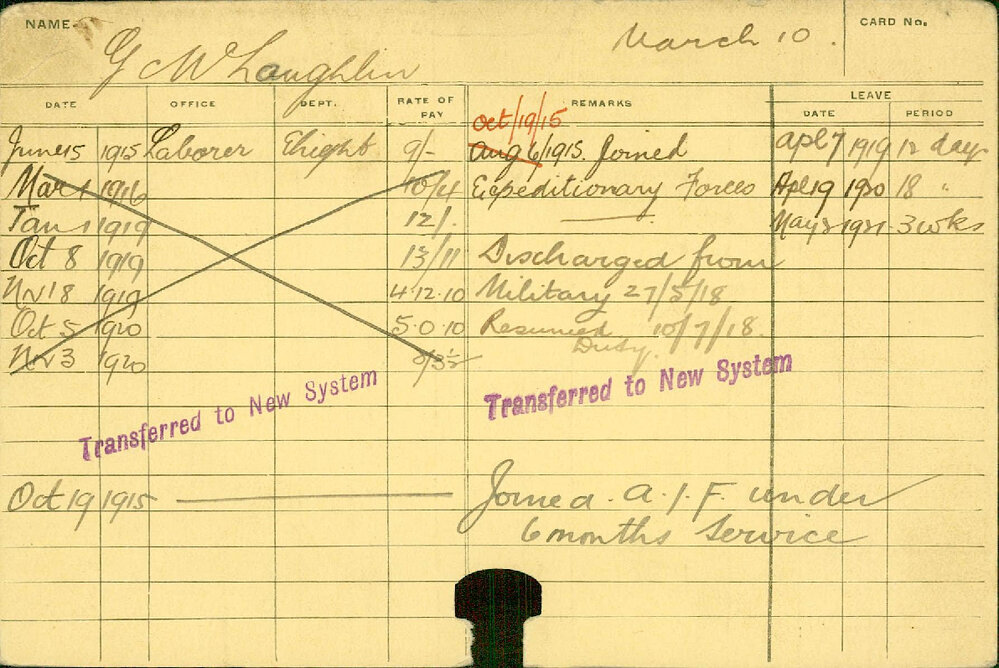 NAME- G McLaughlin March 10. CARD No.
DATE OFFICE DEPT. RATE OF PAY REMARKS LEAVE
DATE PERIOD
Oct/19/15
June 15 1915 Laborer Ehight 9/- Aug 6/1915. Joined Apl 7 1919 12 days
Mar 1 1916 10/4 Expeditionary Forces Apl 19 1920 18 "
Jan 1 1919 12/. May 2 1921 3 wks
Oct 8 1919 13/11 Discharged from
Nv 18 1919 4.12.10 Military 27/5/18
Oct 5 1920 5.0.10 Resumed 10/7/18.
Duty.
Nv 3 1920
Transferred to New System Transferred to New System
Oct 19 1915 Joined. A.I.F. under
6 months Service